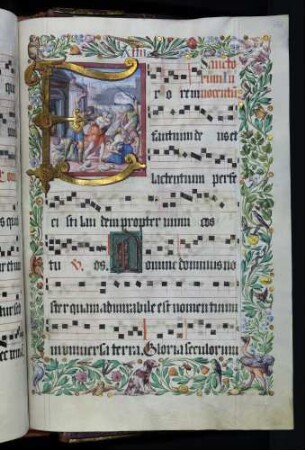 Sancto
rum In
E x o re in nocentiū
fantium de us et
lactentium perfe
ci sti lau dem propter inimi cos
tu os. V. Domine dominus no
ster quam admirabile est nomen tuum
in universa terra. Gloria seculorum